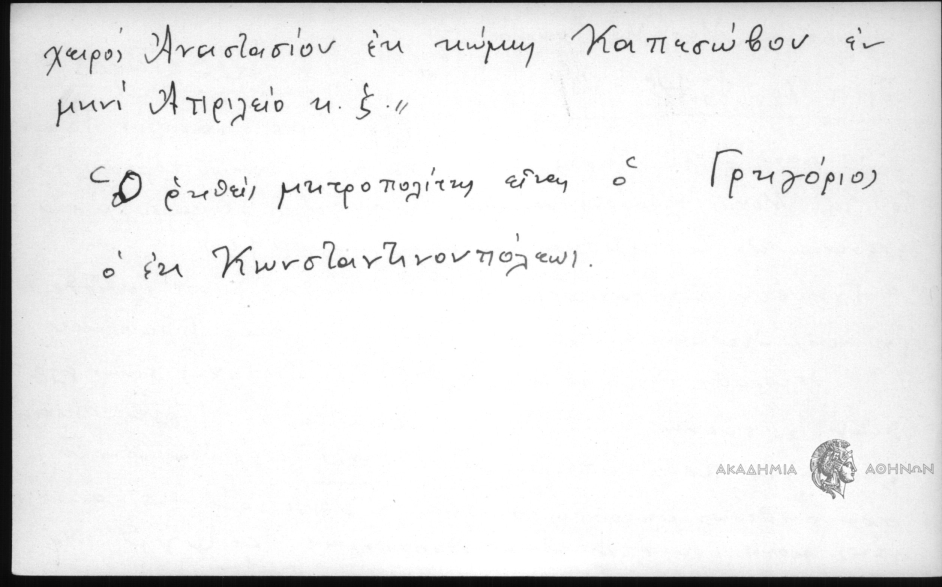 χειρός Ἀναστασίου ἐκ κώμης Καπεσώβου ἐν
μηνί Ἀπριλείο κ. ξ.〃
Ὁ ῥηθείς μητροπολίτης εἶναι ὁ Γρηγόριος
ὁ ἐκ Κωνσταντινουπόλεως.
ΑΚΑΔΗΜΙΑ ΑΘΗΝΩΝ